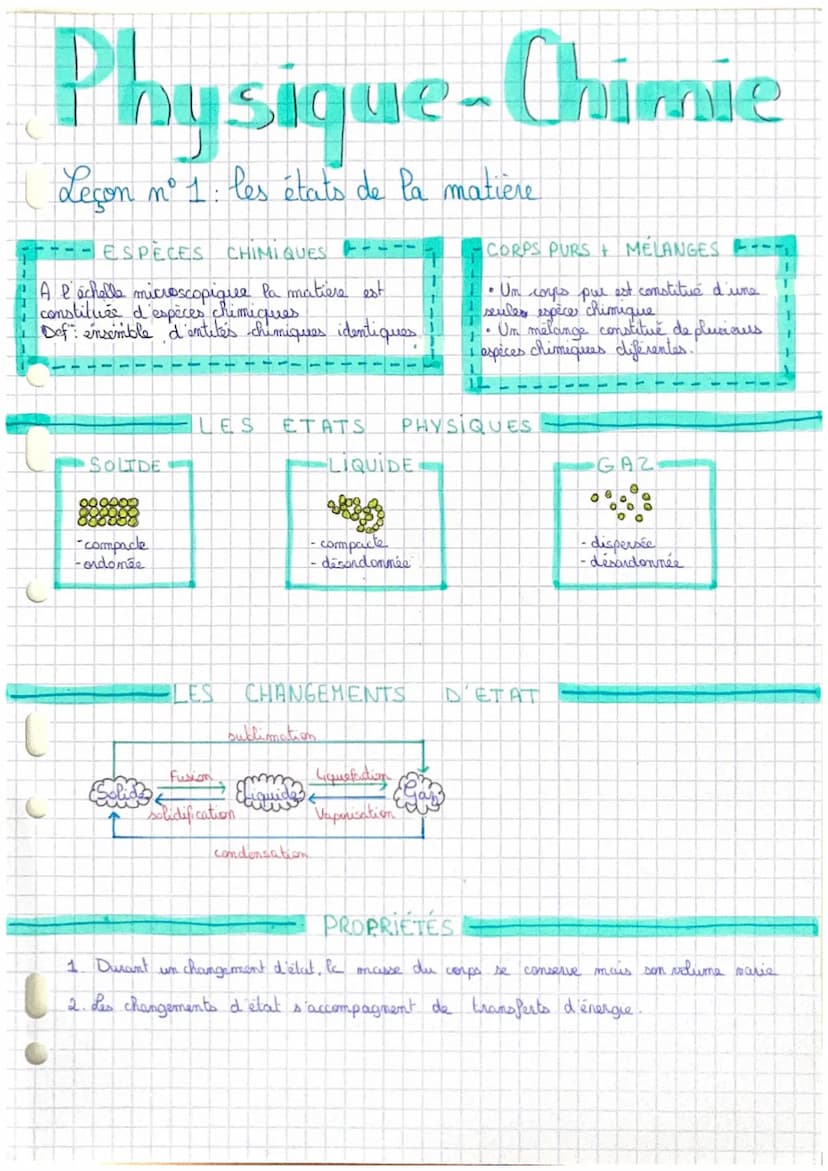 Physique-Chimie
Leçon n° 1: les états de la matière
ESPÈCES CHIMIQUES
A l'échelle microscopique la matière est
constituée d'espèces chimiques
Def: ensemble d'entités chimiques identiques.
CORPS PURS + MÉLANGES
• Un corps pur est constitué d'une
seules espèce chimique
• Un mélange constitué de plusieurs
espèces chimiques diférentes.
LES ETATS PHYSIQUES
SOLIDE
-compacte
-ordonnée
LIQUIDE
- compacte
- désordonnée
GAZ
- dispersée
- désordonnée
LES CHANGEMENTS D'ETAT
sublimation
Fusion
Liquefaction
Solide
Liquide
Gaz
solidification
Vaporisation
condensation
PROPRIÉTÉS
1. Durant un changement d'état, la masse du corps se conserve mais son volume varie
2. Les changements d'état s'accompagnent de transferts d'énergie.